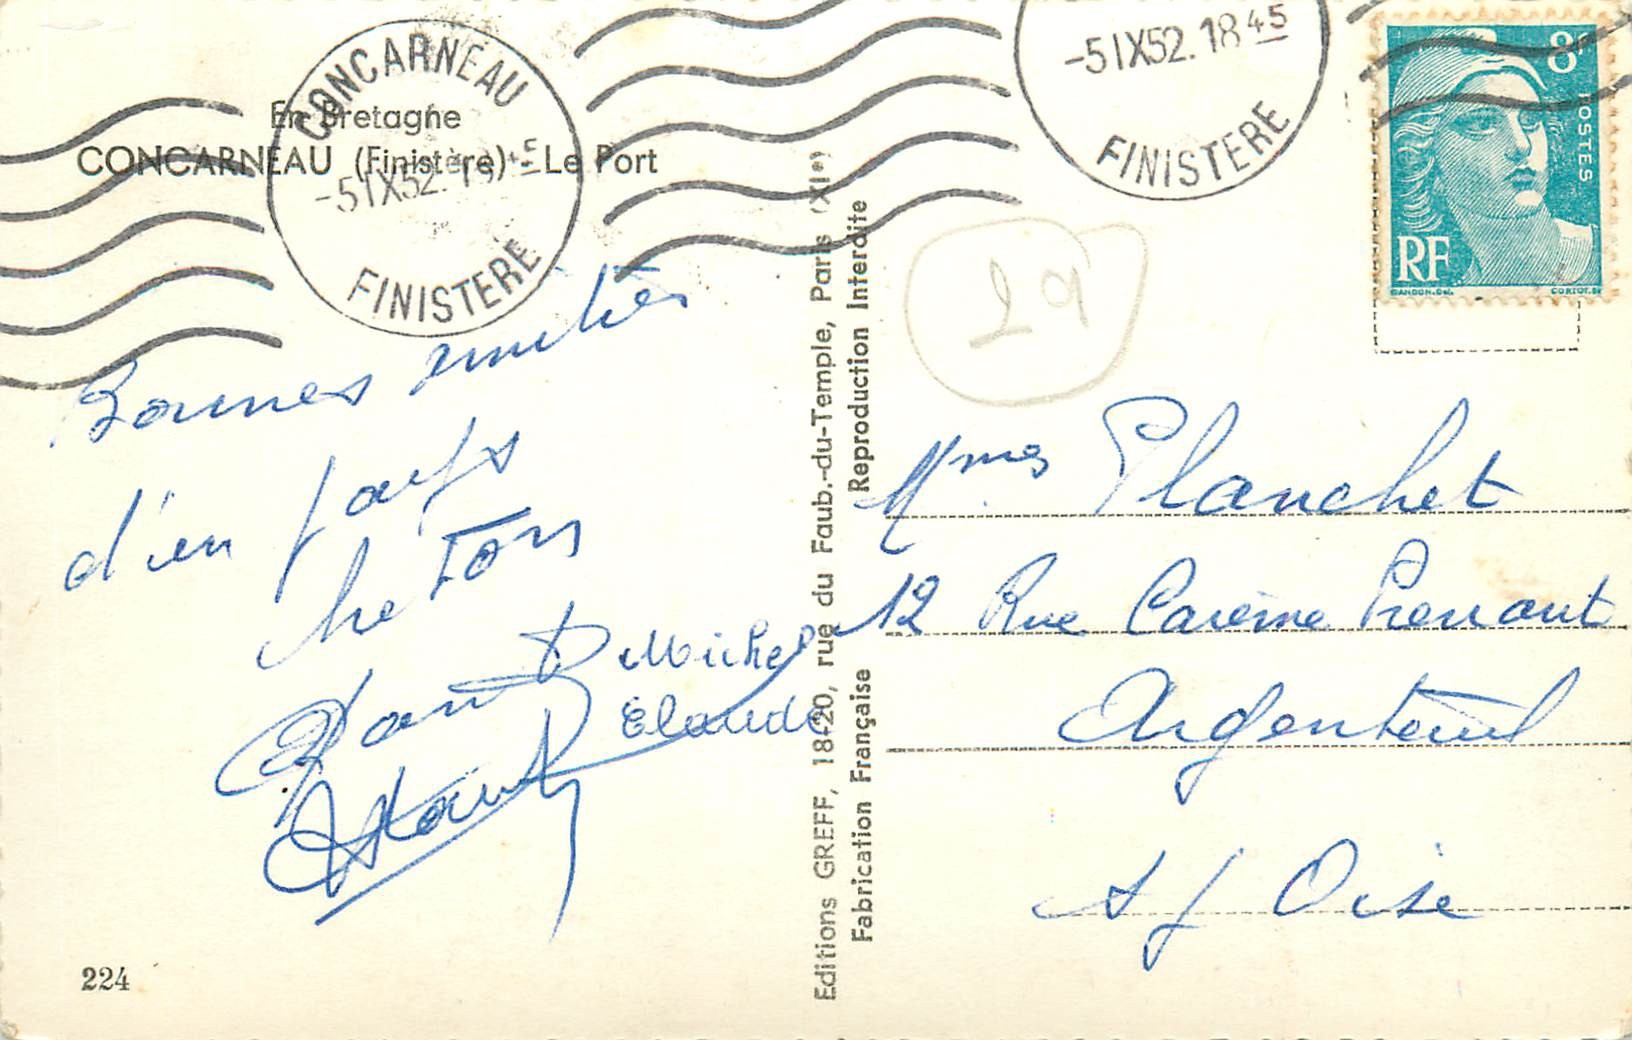 En Bretagne
CONCARNEAU (Finistère) - Le Port
CONCARNEAU
-5 IX 52. 18 45
FINISTERE
-5 IX 52. 18 45
FINISTERE
8F
POSTES
RF
GANDON.Del.
CORTOT.Sc
29
Bonnes amitiés
d'un pays
breton
Michel
Claude
Mmes Planchet
12 Rue Carême Prenant
Argenteuil
S / Oise
Editions GREFF, 18-20, rue du Faub.-du-Temple, Paris (XIe)
Fabrication Française
Reproduction Interdite
224